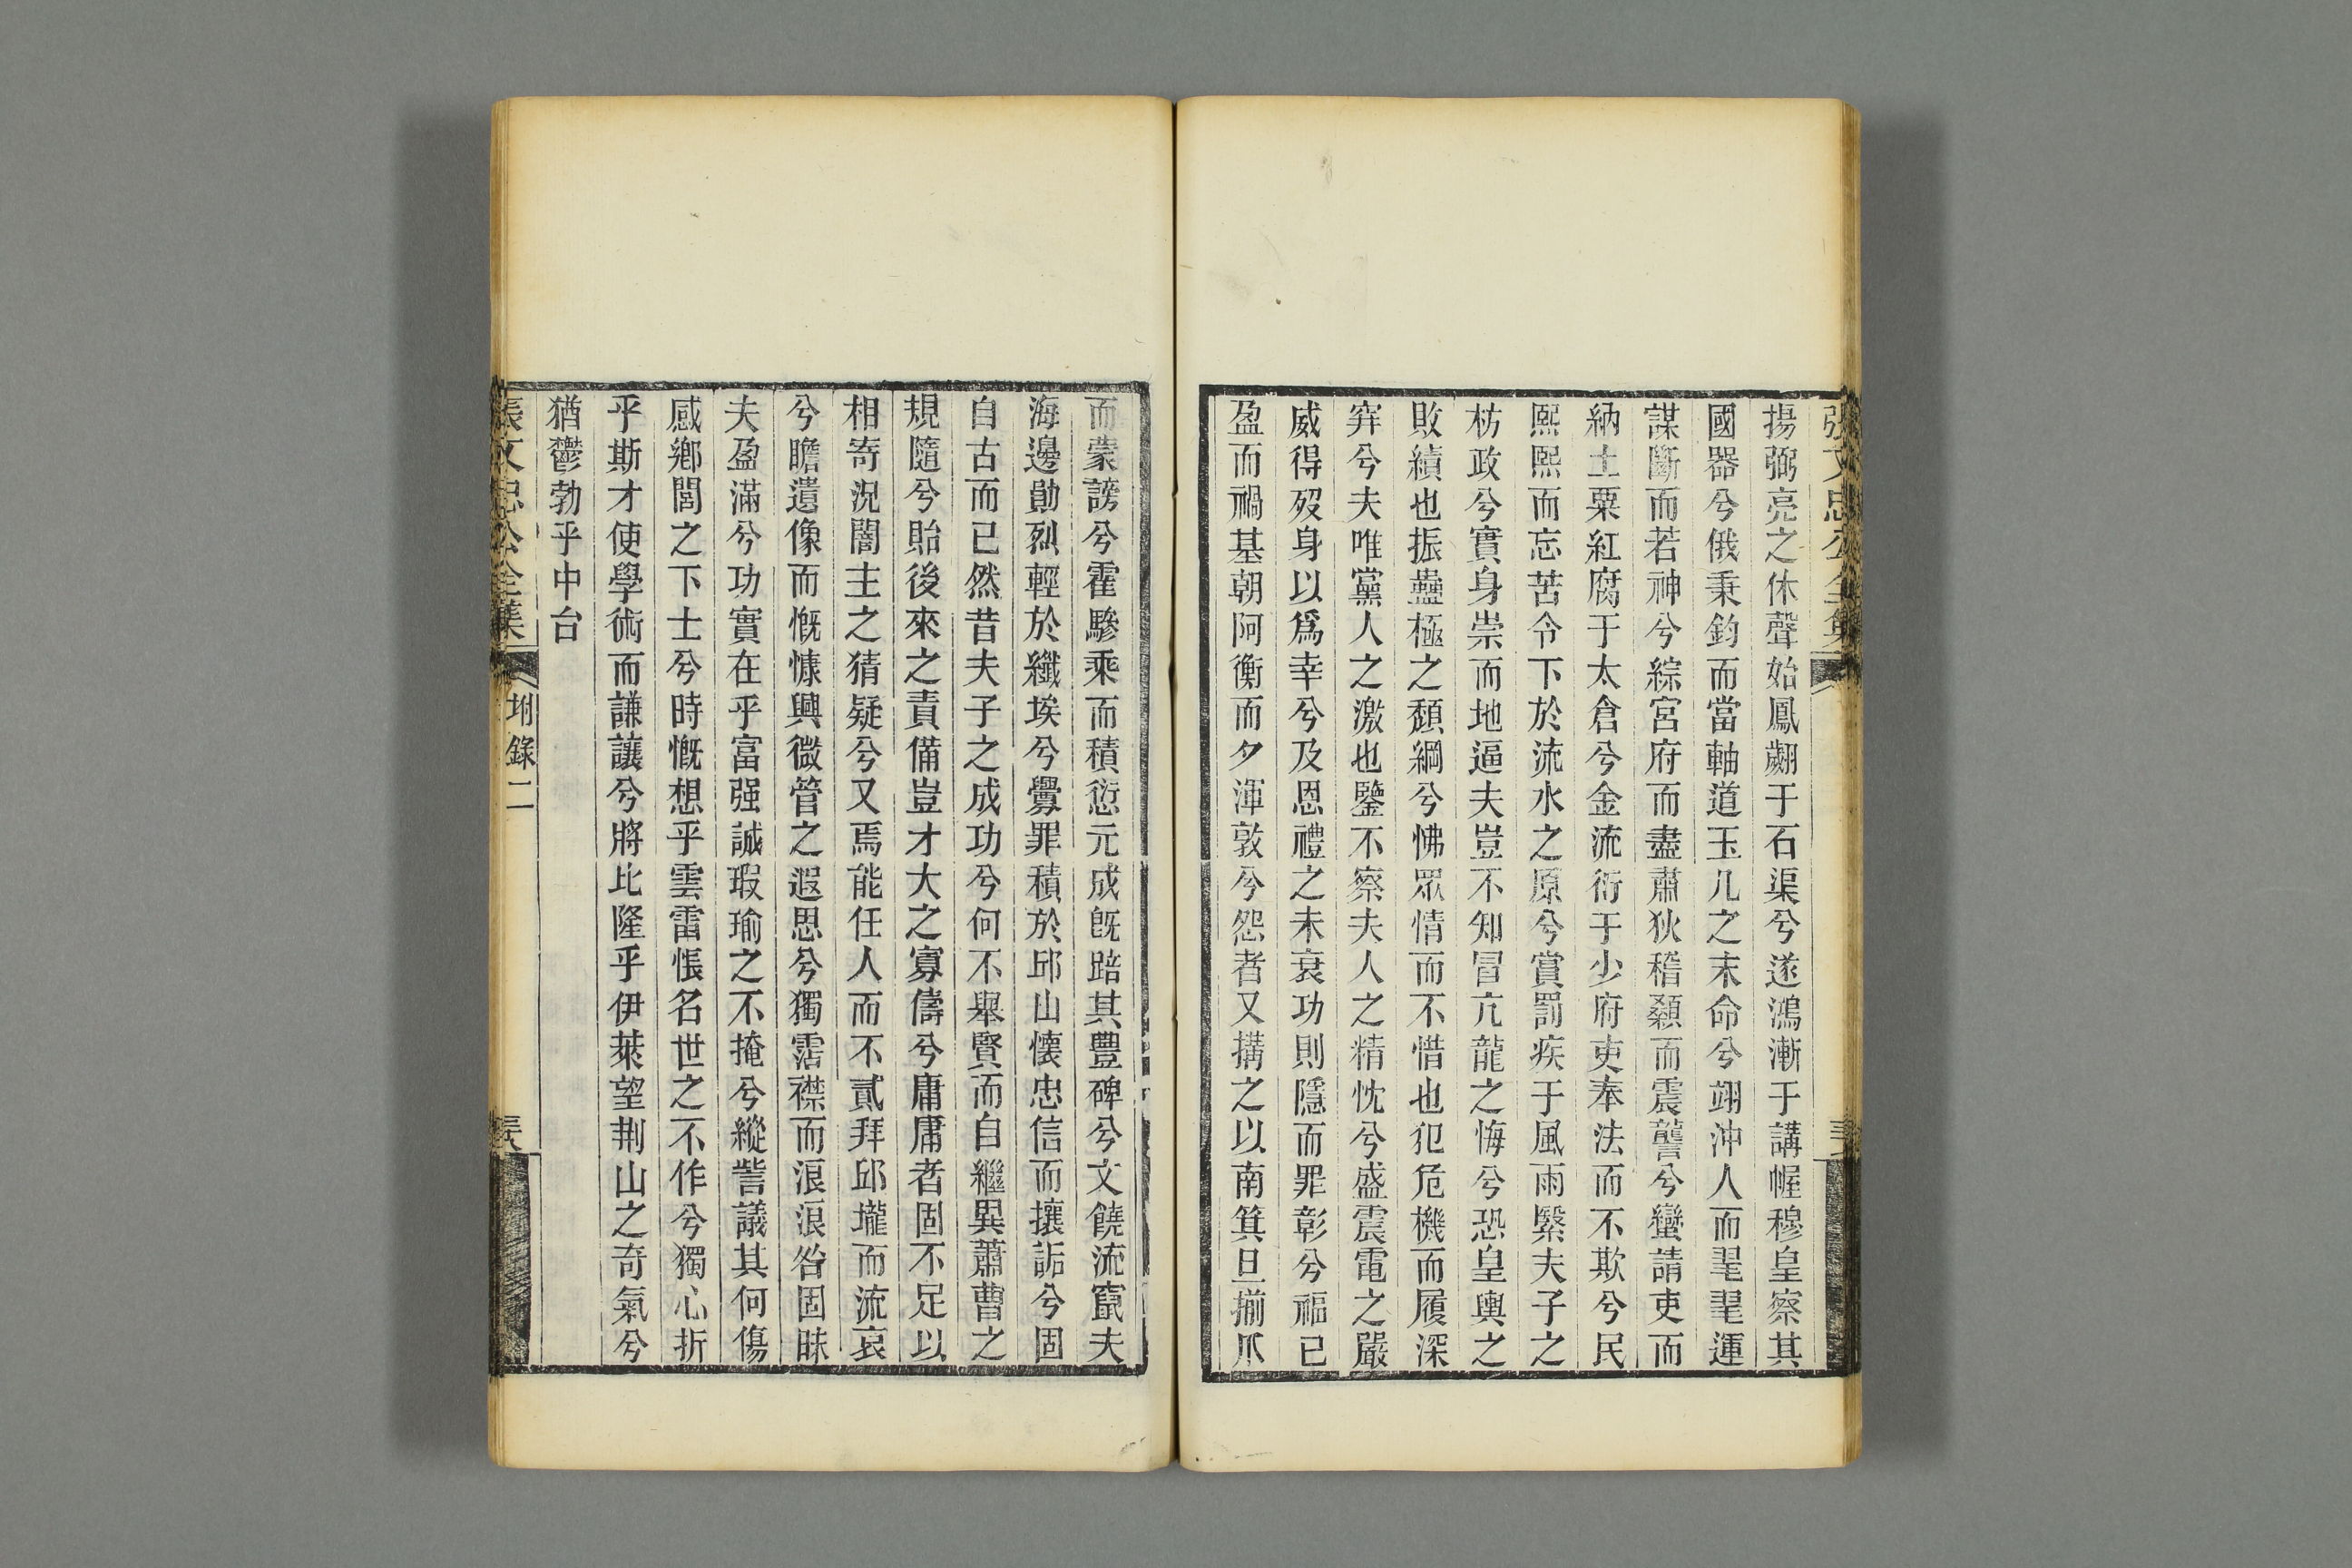 張文忠公全集
揚弼亮之休聲始鳳翽于石渠兮遂鴻漸于講幄穆皇察其
國器兮俄秉鈞而當軸道玉几之末命兮翊沖人而毣毣運
謀斷而若神兮綜宮府而盡肅狄稽顙而震讋兮蠻請吏而
納土粟紅腐于太倉兮金流衍于少府吏奉法而不欺兮民
熙熙而忘苦令下於流水之原兮賞罰疾于風雨繄夫子之
枋政兮實身崇而地逼夫豈不知冒亢龍之悔兮恐皇輿之
敗績也振蠱極之頹綱兮怫眾情而不惜也犯危機而履深
穽兮夫唯黨人之激也鑒不察夫人之精忱兮盛震電之嚴
威得歿身以爲幸兮及恩禮之未衰功則隱而罪彰兮福已
盈而禍基朝阿衡而夕渾敦兮怨者又搆之以南箕旦揃爪
而蒙謗兮霍驂乘而積愆元成旣踣其豐碑兮文饒流竄夫
海邊勛烈輕於纖埃兮釁罪積於邱山懷忠信而攘詬兮固
自古而已然昔夫子之成功兮何不舉賢而自繼異蕭曹之
規隨兮貽後來之責備豈才大之寡儔兮庸庸者固不足以
相寄況闇主之猜疑兮又焉能任人而不貳拜邱壠而流哀
兮瞻遺像而慨慷興微管之遐思兮獨霑襟而浪浪咎固昧
夫盈滿兮功實在乎富强誠瑕瑜之不掩兮縱訾議其何傷
感鄉閭之下士兮時慨想乎雲雷悵名世之不作兮獨心折
乎斯才使學術而謙讓兮將比隆乎伊萊望荆山之奇氣兮
猶鬱勃乎中台
張文忠公全集
坿錄二